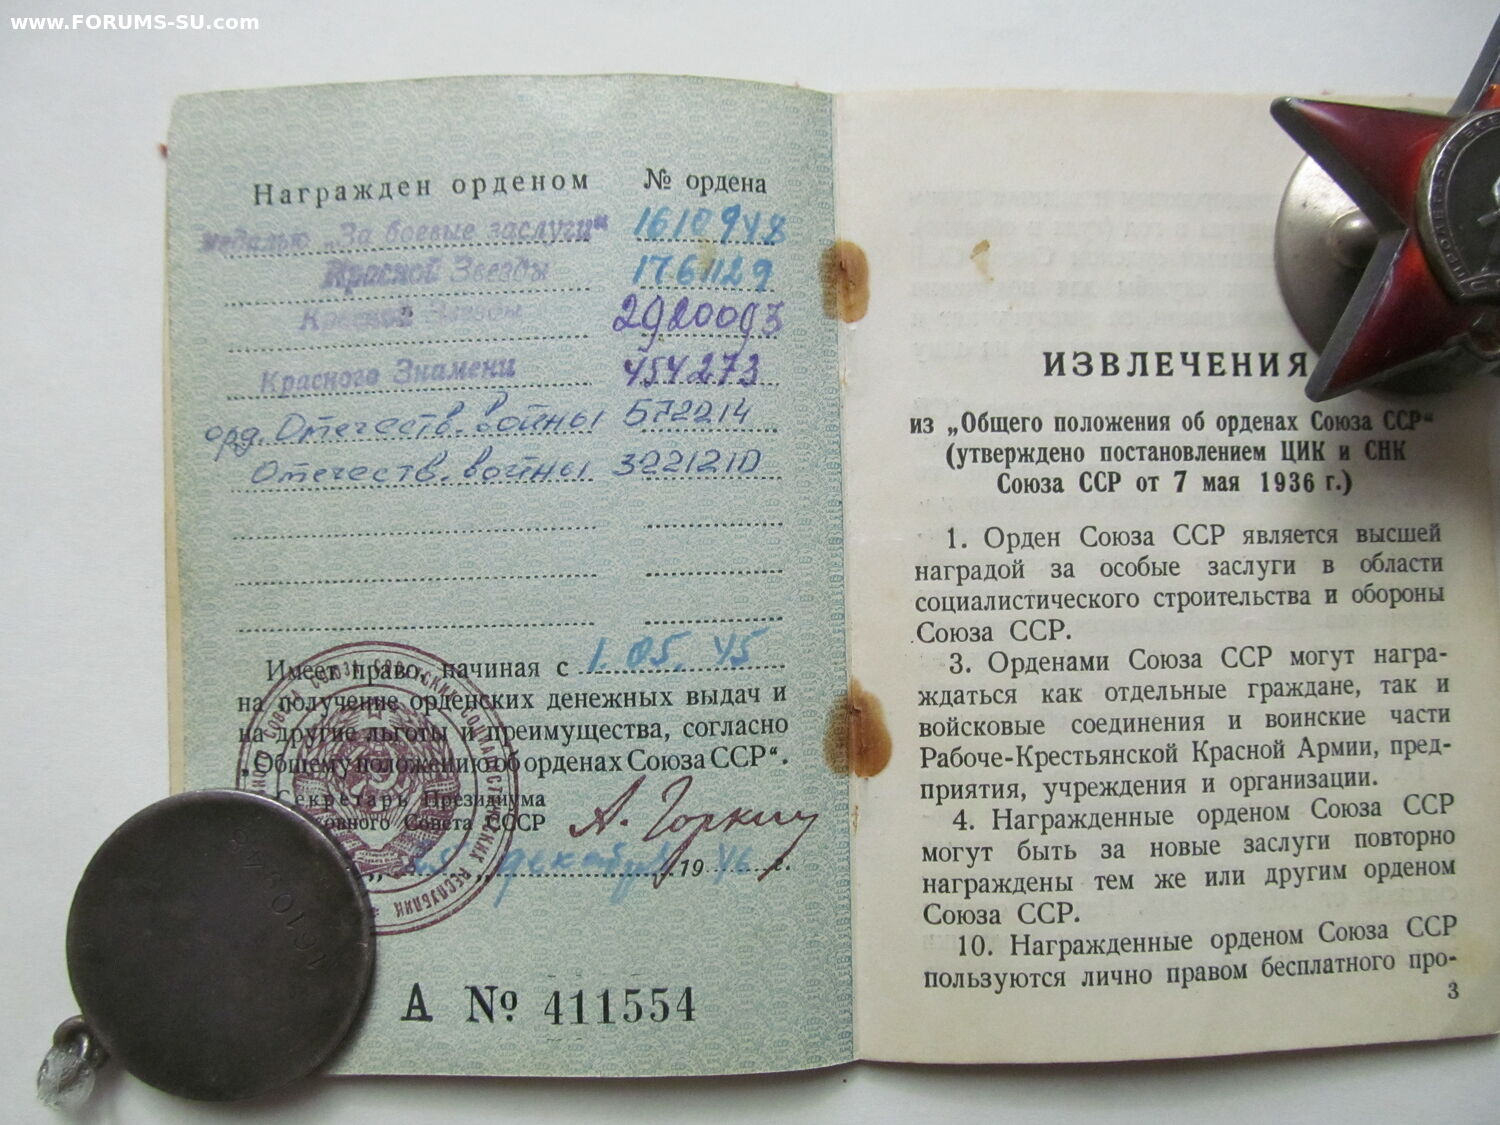 www.FORUMS-SU.com
Награжден орденом № ордена
медалью „За боевые заслуги“ 1610948
Красной Звезды 1761129
Красной Звезды 2920093
Красного Знамени 454273
орд. Отечеств. войны 572214
Отечеств. войны 3221210
Имеет право, начиная с 1.05.45
на получение орденских денежных выдач и
на другие льготы и преимущества, согласно
„Общему положению об орденах Союза ССР“.
Секретарь Президиума
Верховного Совета СССР А. Горкин
„25„ декабря 1946 г.
А № 411554
1610948
ИЗВЛЕЧЕНИЯ
из „Общего положения об орденах Союза ССР“
(утверждено постановлением ЦИК и СНК
Союза ССР от 7 мая 1936 г.)
1. Орден Союза ССР является высшей
наградой за особые заслуги в области
социалистического строительства и обороны
Союза ССР.
3. Орденами Союза ССР могут награ-
ждаться как отдельные граждане, так и
войсковые соединения и воинские части
Рабоче-Крестьянской Красной Армии, пред-
приятия, учреждения и организации.
4. Награжденные орденом Союза ССР
могут быть за новые заслуги повторно
награждены тем же или другим орденом
Союза ССР.
10. Награжденные орденом Союза ССР
пользуются лично правом бесплатного про-
3